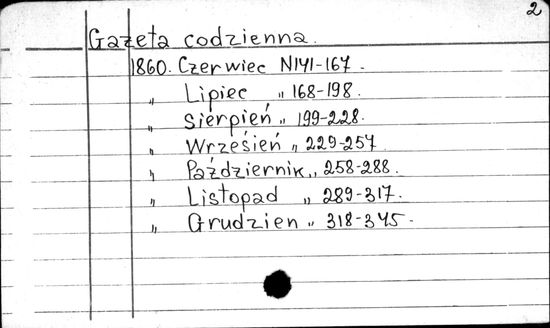 2
Gazeta codzienna.
1860. Czerwiec N141-167.
„ Lipiec „ 168-198.
„ Sierpień „ 199-228.
„ Wrzesień „ 229-257
„ Październik „ 258-288.
„ Listopad „ 289-317.
„ Grudzien „ 318-345.